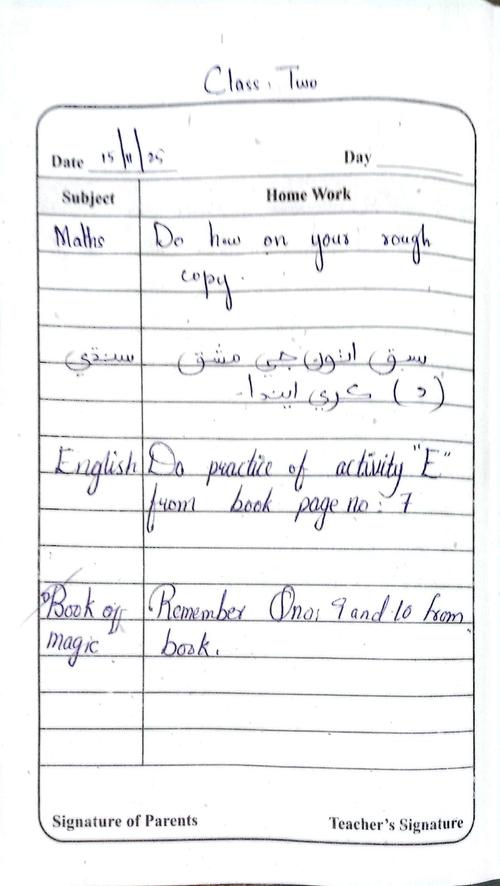 Class: Two
Date 15/11/25 Day
Subject Home Work
Maths Do h.w on your rough
copy.
سنڌي سبق انون جي مشق
(د) ڪري ايندا۔
English Do practice of activity "E"
from book page no: 7
Book of Remember Qno: 9 and 10 from
magic book.
Signature of Parents Teacher's Signature